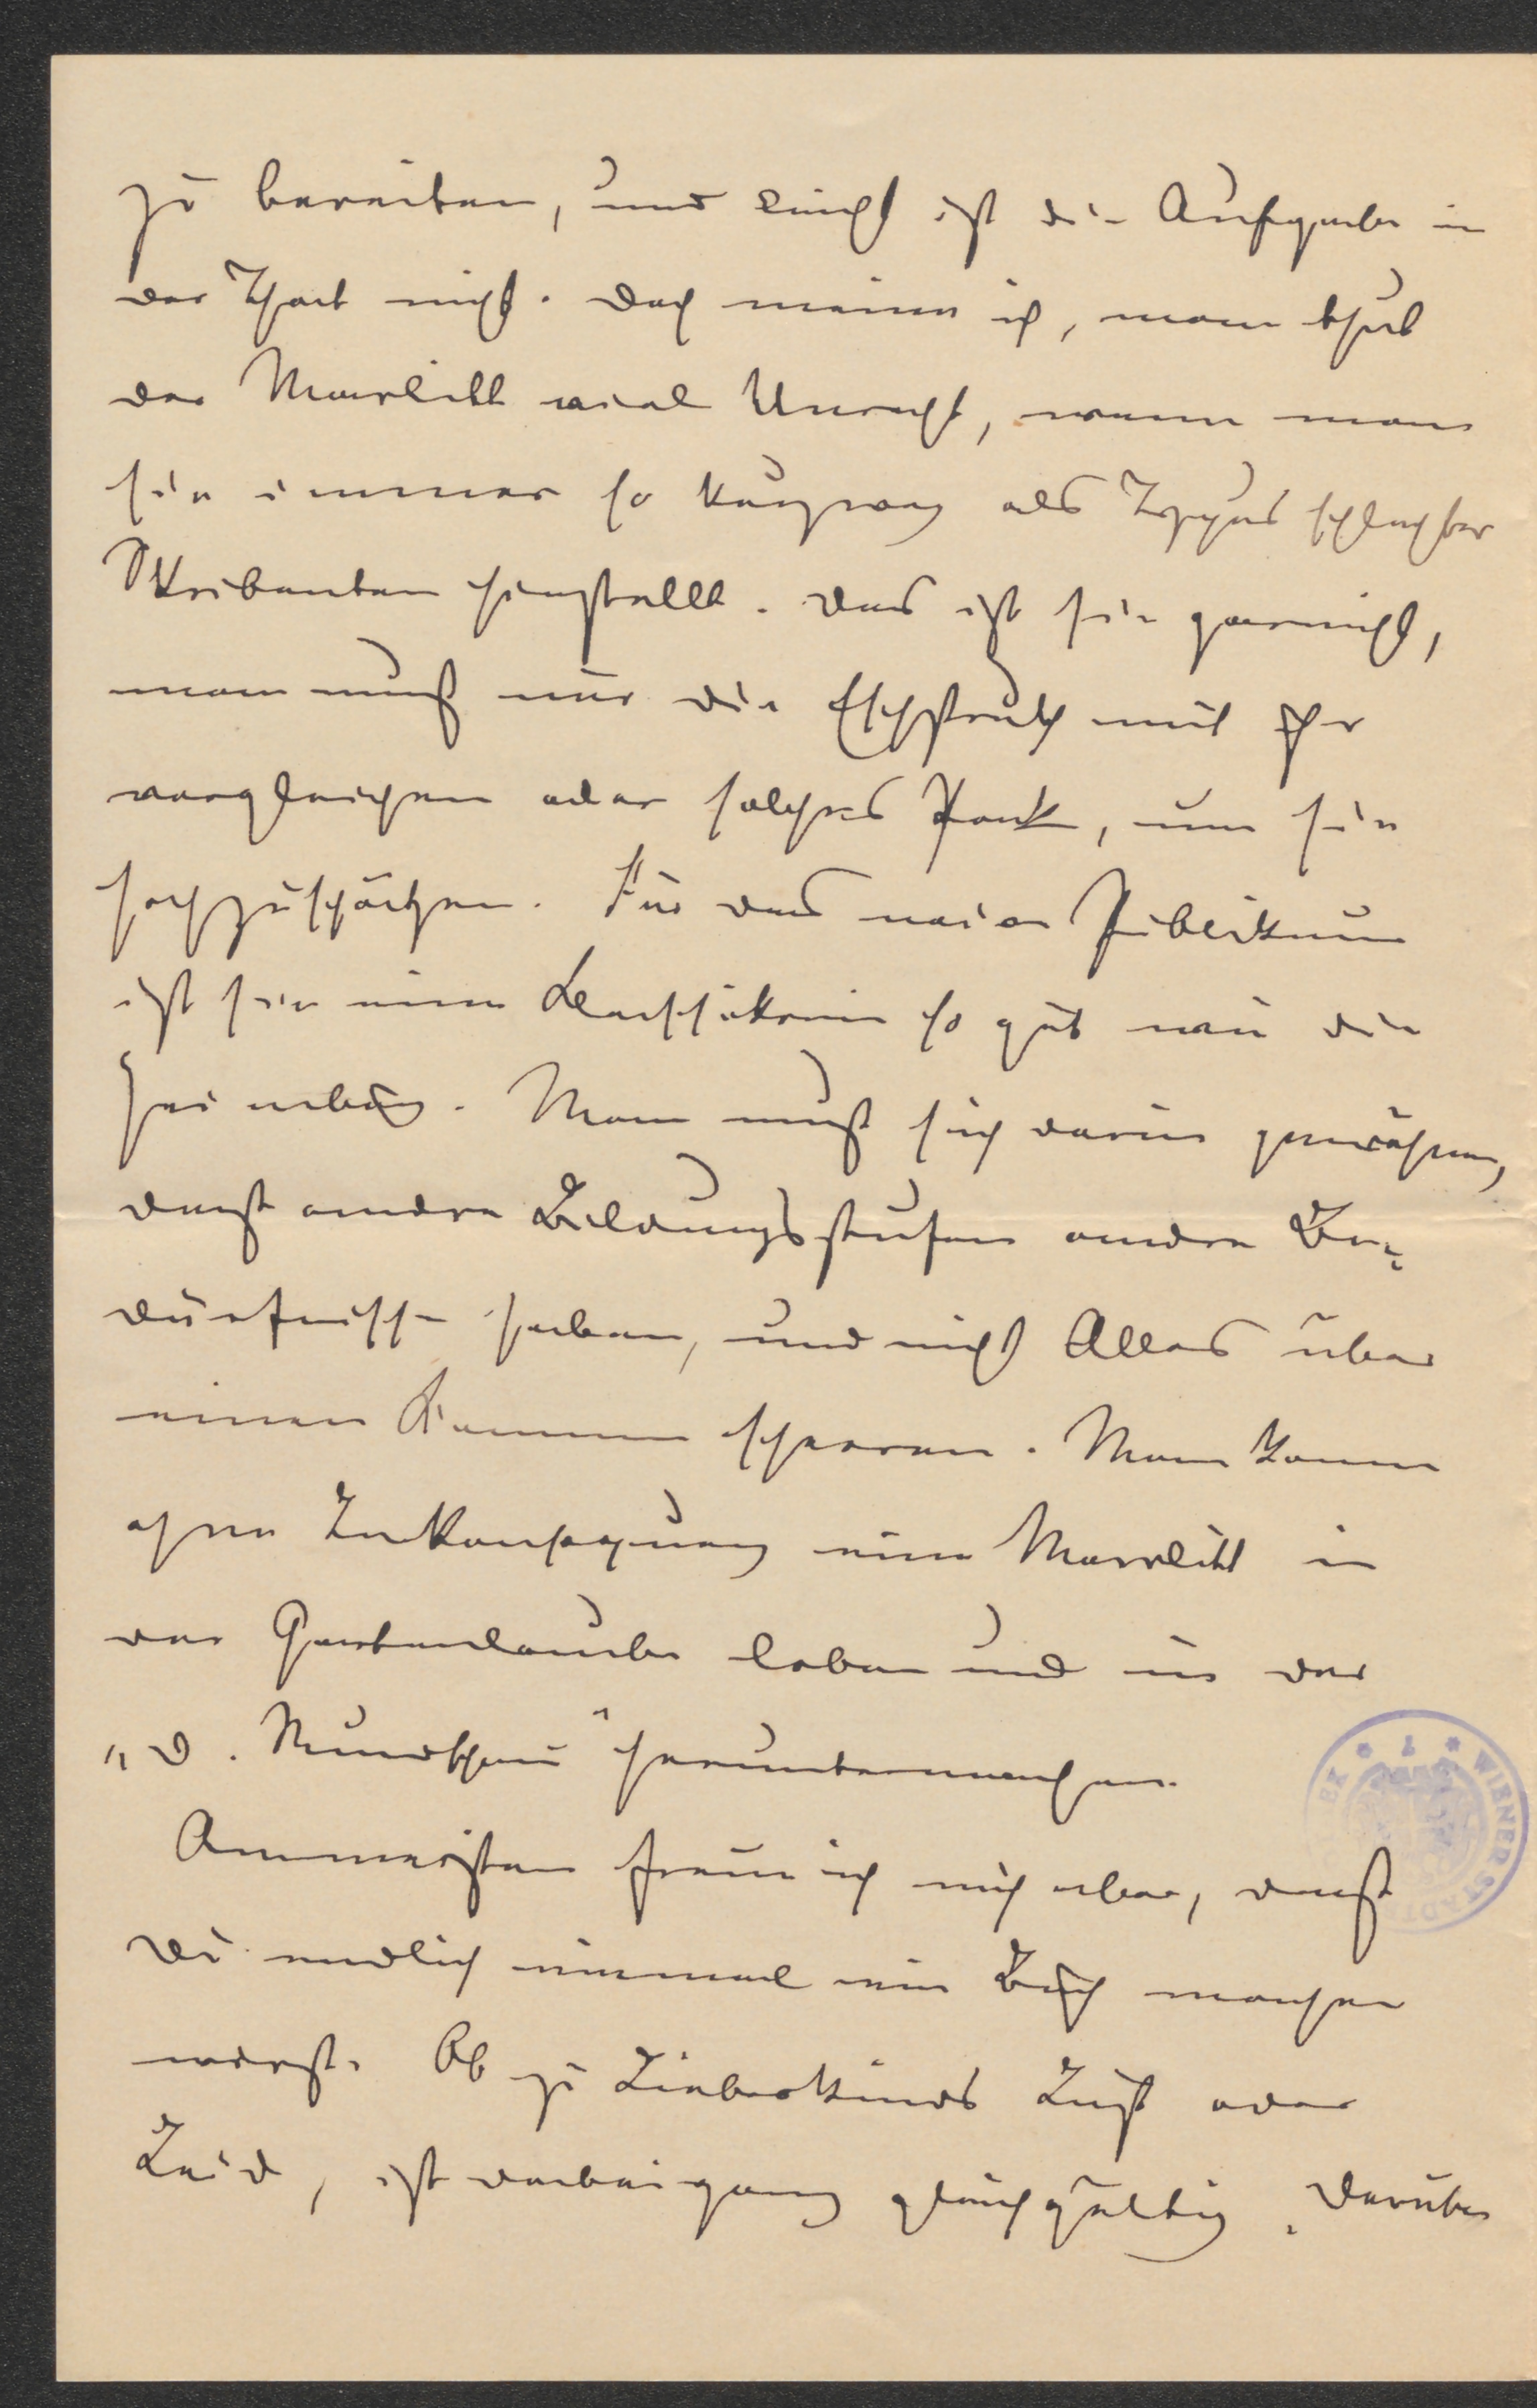 zu bereiten, und leicht ist die Aufgabe in
der That nicht. Doch meine ich, man thut
der Marlitt viel Unrecht, wenn man
sie immer so kurzweg als Typus schlechter
Skribenten hinstellt. Das ist sie garnicht,
man muß nur die Eschstruth mit ihr
vergleichen oder solches Pack, um sie
hochzuschätzen. Für das naive Publikum
ist sie eine Klassikerin so gut wie die
Heimburg. Man muß sich daran gewöhnen,
daß andre Bildungsstufen andre Be-
dürfnisse haben, und nicht Alles über
einen Kamm scheeren. Man kann
ohne Inkonsequenz eine Marlitt in
der Gartenlaube loben und in der
„D. Rundschau" heruntermachen.
Ammeisten freue ich mich aber, daß
Du endlich einmal ein Buch machen
wirst. Ob zu Liebeskinds Lust oder
Leid, ist dabei ganz gleichgültig. Darüber
WIENER STADT